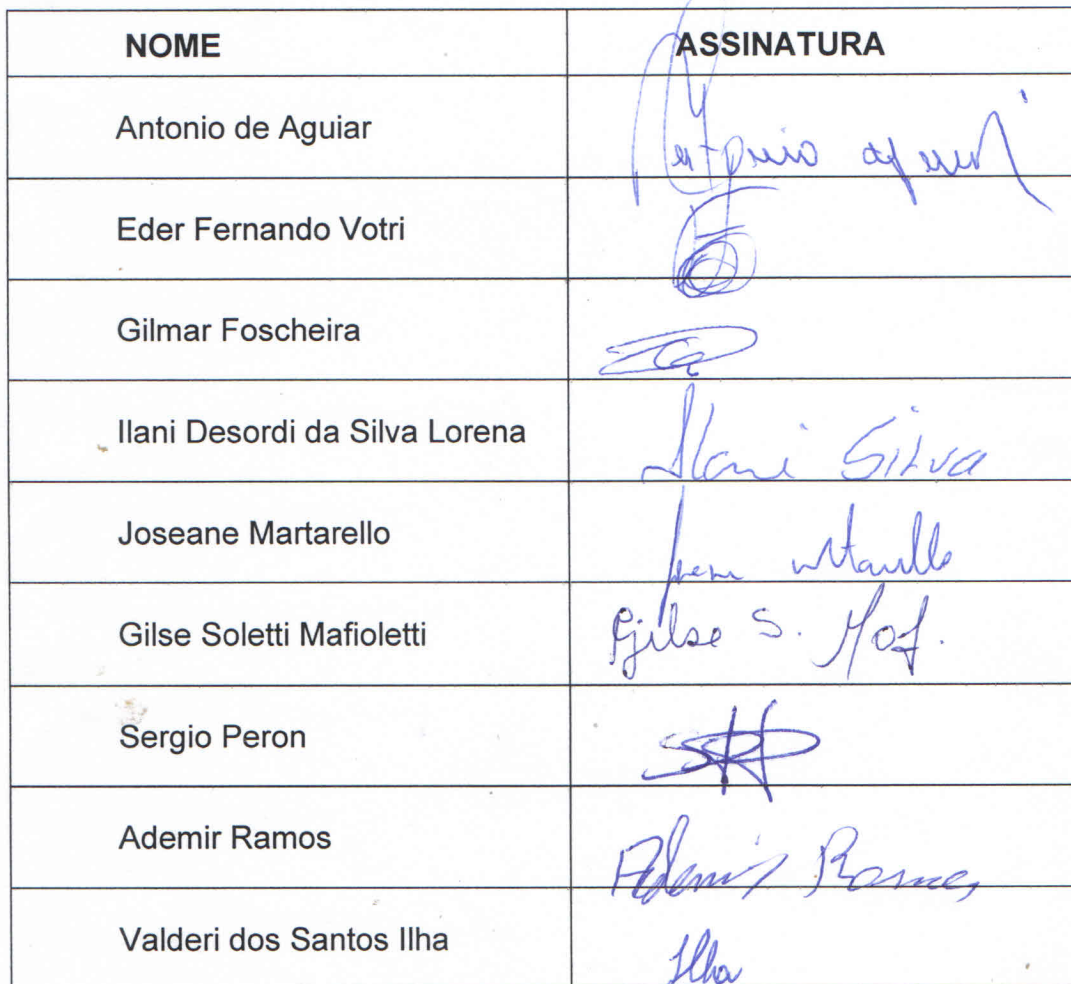 NOME ASSINATURA
Antonio de Aguiar
Eder Fernando Votri
Gilmar Foscheira
Ilani Desordi da Silva Lorena Ilani Silva
Joseane Martarello
Gilse Soletti Mafioletti Gilse S. Maf.
Sergio Peron
Ademir Ramos Ademir Ramos
Valderi dos Santos Ilha Ilha